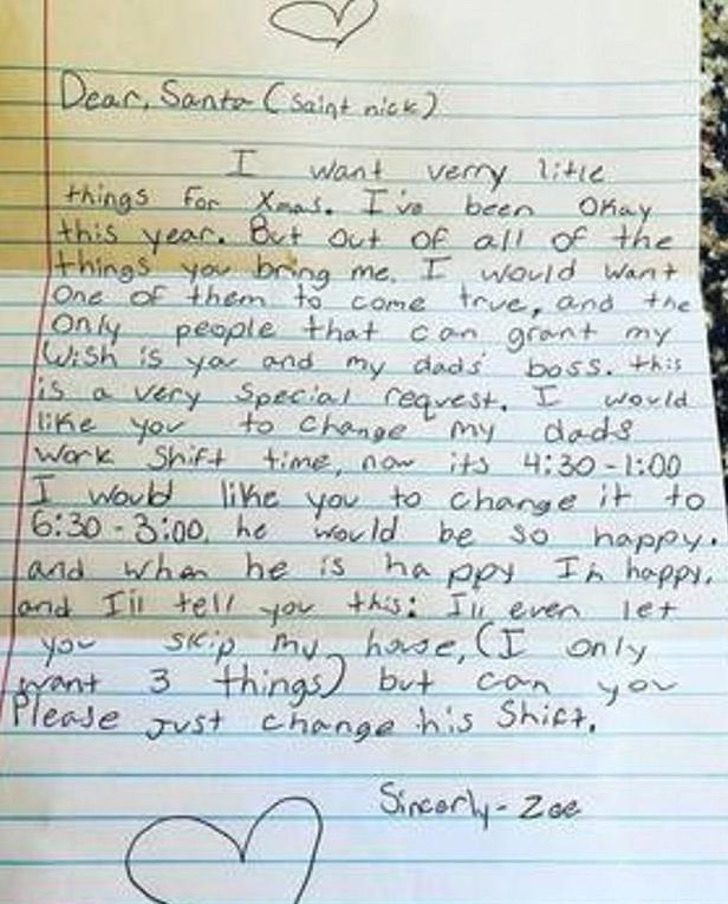 Dear, Santa (Saint nick)
I want verry litle
things for Xmas. I've been Okay
this year. But out of all of the
things you bring me. I would want
One of them to come true, and the
Only people that can grant my
Wish is you and my dads' boss. this
is a very Special request. I would
like you to change my dads
work Shift time, now its 4:30-1:00
I would like you to change it to
6:30-3:00. he would be so happy.
and when he is happy Im happy.
and I'll tell you this: I'll even let
you skip my house, (I only
want 3 things) but can you
Please Just change his Shift.
Sincerly- Zoe